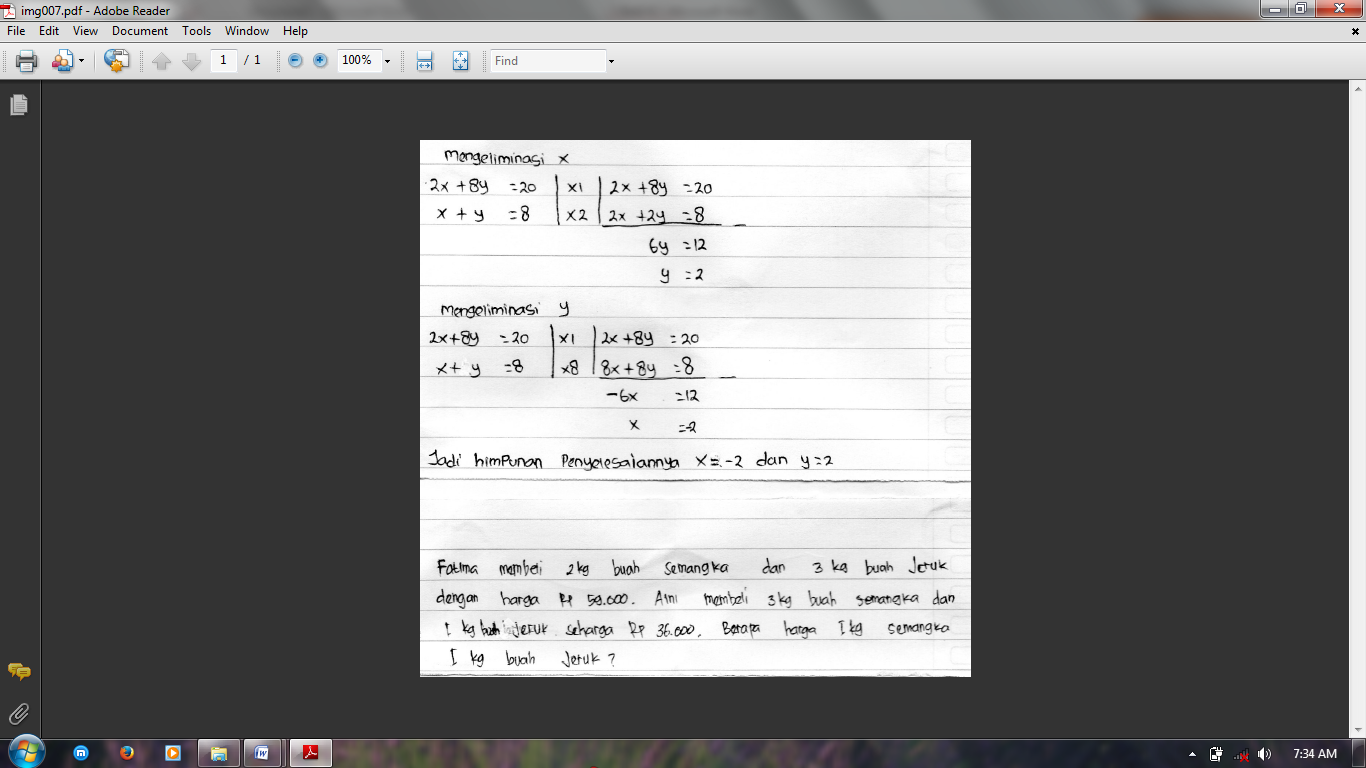 img007.pdf - Adobe Reader
File Edit View Document Tools Window Help
1 / 1 100% Find
Mengeliminasi x
2x + 8y = 20 | x1 | 2x + 8y = 20
x + y = 8 | x2 | 2x + 2y = 8 _
6y = 12
y = 2
Mengeliminasi y
2x + 8y = 20 | x1 | 2x + 8y = 20
x + y = 8 | x8 | 8x + 8y = 8 _
-6x = 12
x = -2
Jadi himpunan Penyelesaiannya x = -2 dan y = 2
Fatima membeli 2 kg buah semangka dan 3 kg buah Jeruk
dengan harga Rp 59.000. Aini membeli 3 kg buah semangka dan
1 kg buah Jeruk seharga Rp 36.000. Berapa harga 1 kg semangka
1 kg buah Jeruk ?
7:34 AM